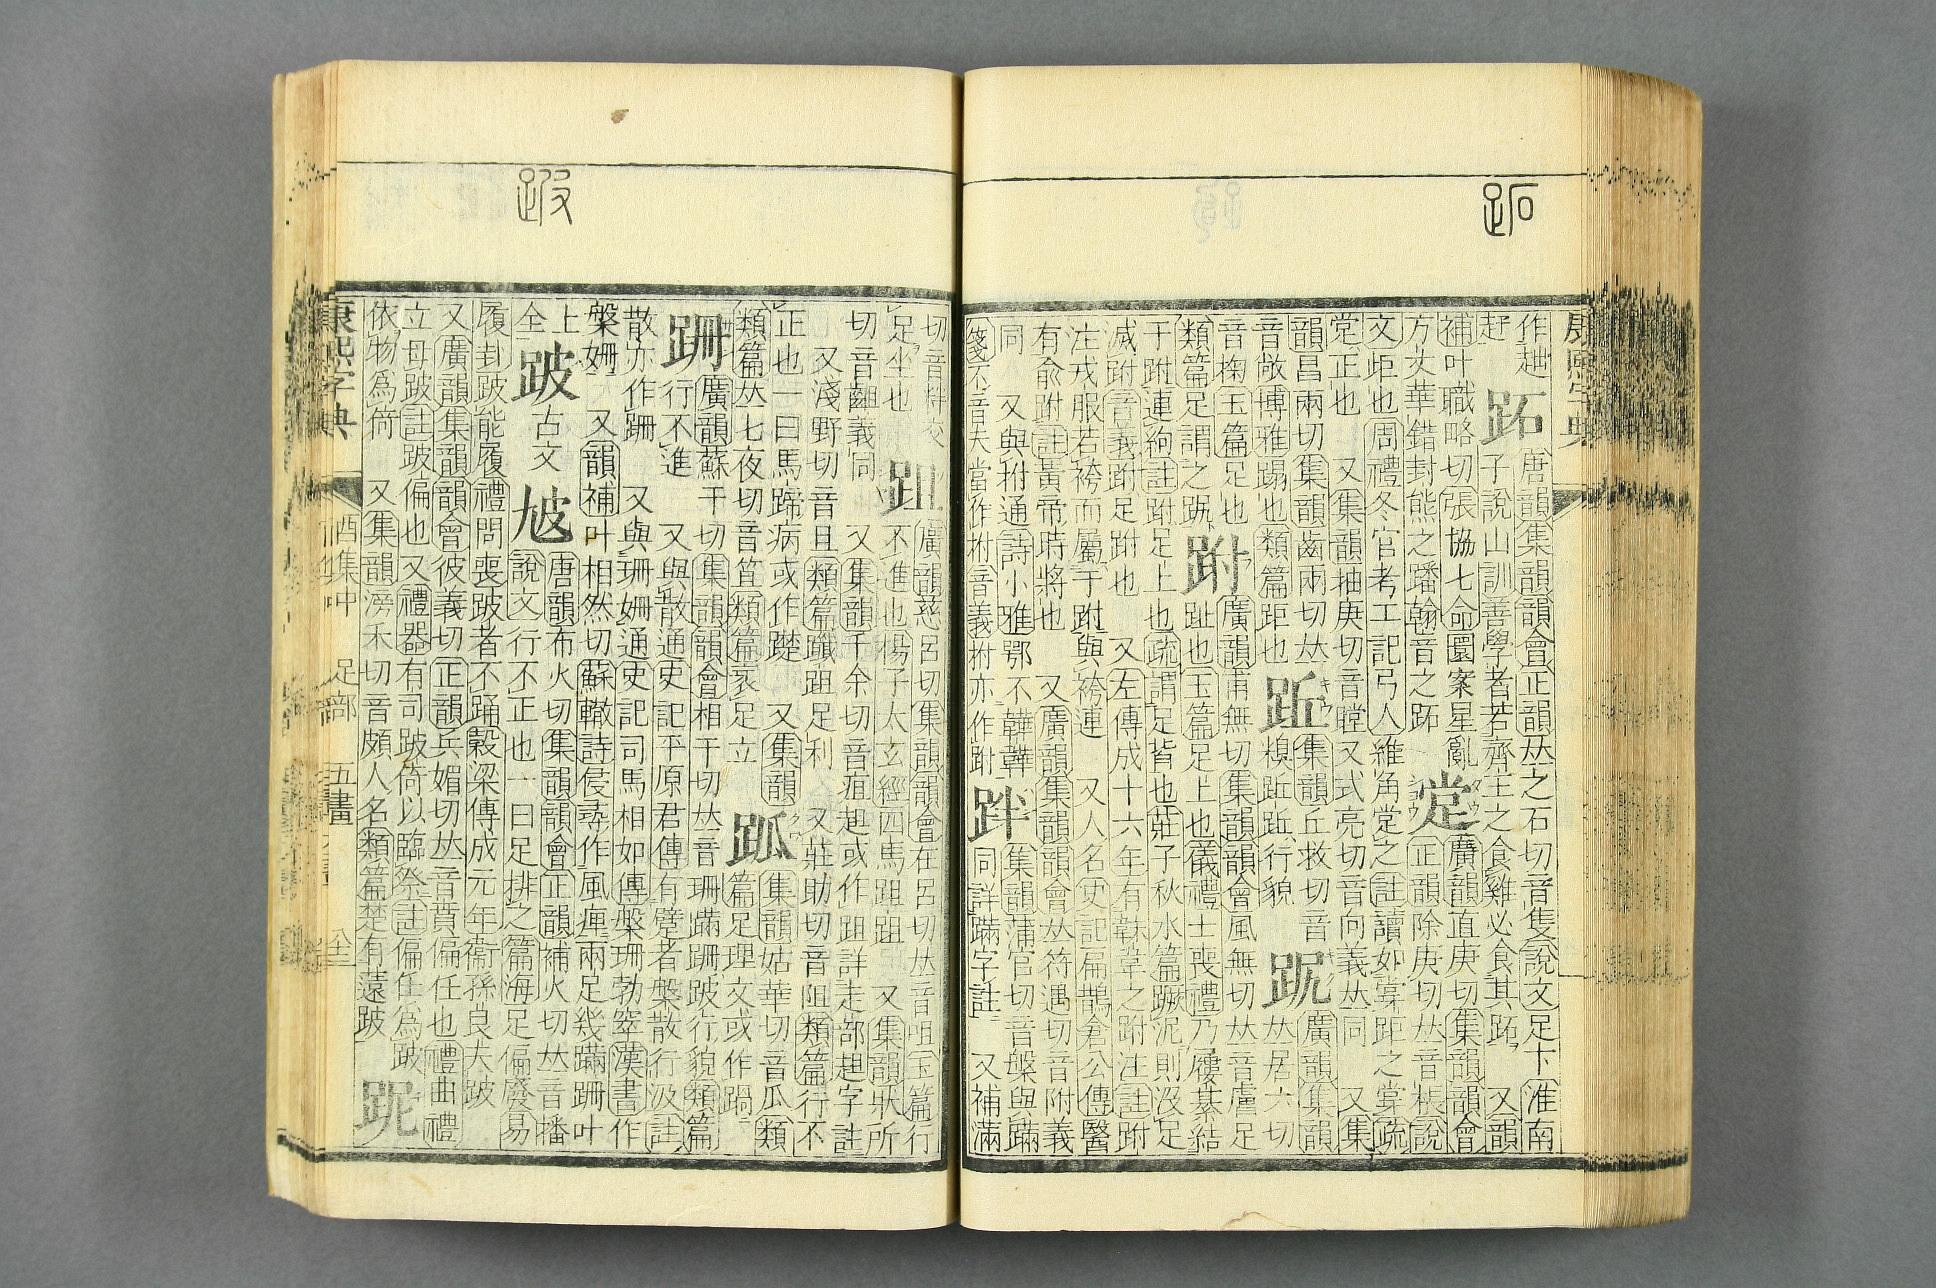 跖
石
康熙字典
作
跖
唐韻集韻韻會正韻𠀤之石切音隻說文足下淮南
子說山訓善學者若齊王之食雞必食其跖 又韻
補叶職略切張協七命圜案星亂
方攵華錯封熊之蹯翰音之跖
廣韻直庚切集韻韻會
正韻除庚切𠀤音棖說
文歫也周禮冬官考工記弓人維角之註讀如牚距之牚疏
正也 又集韻抽庚切音瞠又式亮切音向義𠀤同 又集
韻昌兩切集韻齒兩切𠀤
音敞博雅蹋也類篇距也
集韻丘救切音
糗行貌
廣韻集韻
𠀤居六切
音椈玉篇足也
類篇足謂之
跗
廣韻甫無切集韻韻會風無切𠀤音膚足
趾也玉篇足上也儀禮士喪禮乃屨綦結
于跗連絇註跗足上也疏謂足背也莊子秋水篇蹶泥則汲足
滅跗音義跗足跗也 又左傳成十六年有韎韋之跗注註跗
注戎服若袴而屬于跗與袴連 又人名史記扁鵲倉公傳醫
有兪跗註黃帝時將也 又廣韻集韻韻會𠀤符遇切音附義
同 又與柎通詩小雅鄂不韡韡
箋不音夫當作柎音義柎亦作跗
跘
集韻蒲官切音槃與蹣
同詳蹣字註 又補滿
跛
切音粄交
足坐也
跙
廣韻慈呂切集韻韻會在呂切𠀤音咀玉篇行
不進也揚子太玄經四馬跙跙 又集韻狀所
切音齟義同 又集韻千余切音疽趄或作跙詳走部趄字註
又淺野切音且類篇跙足利 又莊助切音阻類篇行不
正也一曰馬蹄病或作 又集韻
類篇𠀤七夜切音笡類篇袤足立
集韻姑華切音瓜類
篇足理文或作
跚
廣韻蘇干切集韻韻會相干切𠀤音珊蹣跚跛行貌類篇
行不進 又與散通史記平原君傳有躄者槃散行汲註
散亦作跚 又與珊姍通史記司馬相如傳槃珊勃窣漢書作
槃姍 又韻補叶相然切蘇轍詩侵尋作風痺兩足幾蹣跚叶
上
仝
跛
古文
𡯁
唐韻布火切集韻韻會正韻補火切𠀤音播
說文行不正也一曰足排之篇海足偏廢易
履卦跛能履禮問喪跛者不踊穀梁傳成元年衞孫良夫跛
又廣韻集韻韻會彼義切正韻兵媚切𠀤音賁偏任也禮曲禮
立毋跛註跛偏也又禮器有司跛倚以臨祭註偏任爲跛
依物爲倚 又集韻滂禾切音頗人名類篇楚有薳跛
跜
康熙字典
酉集中 足部 五畫